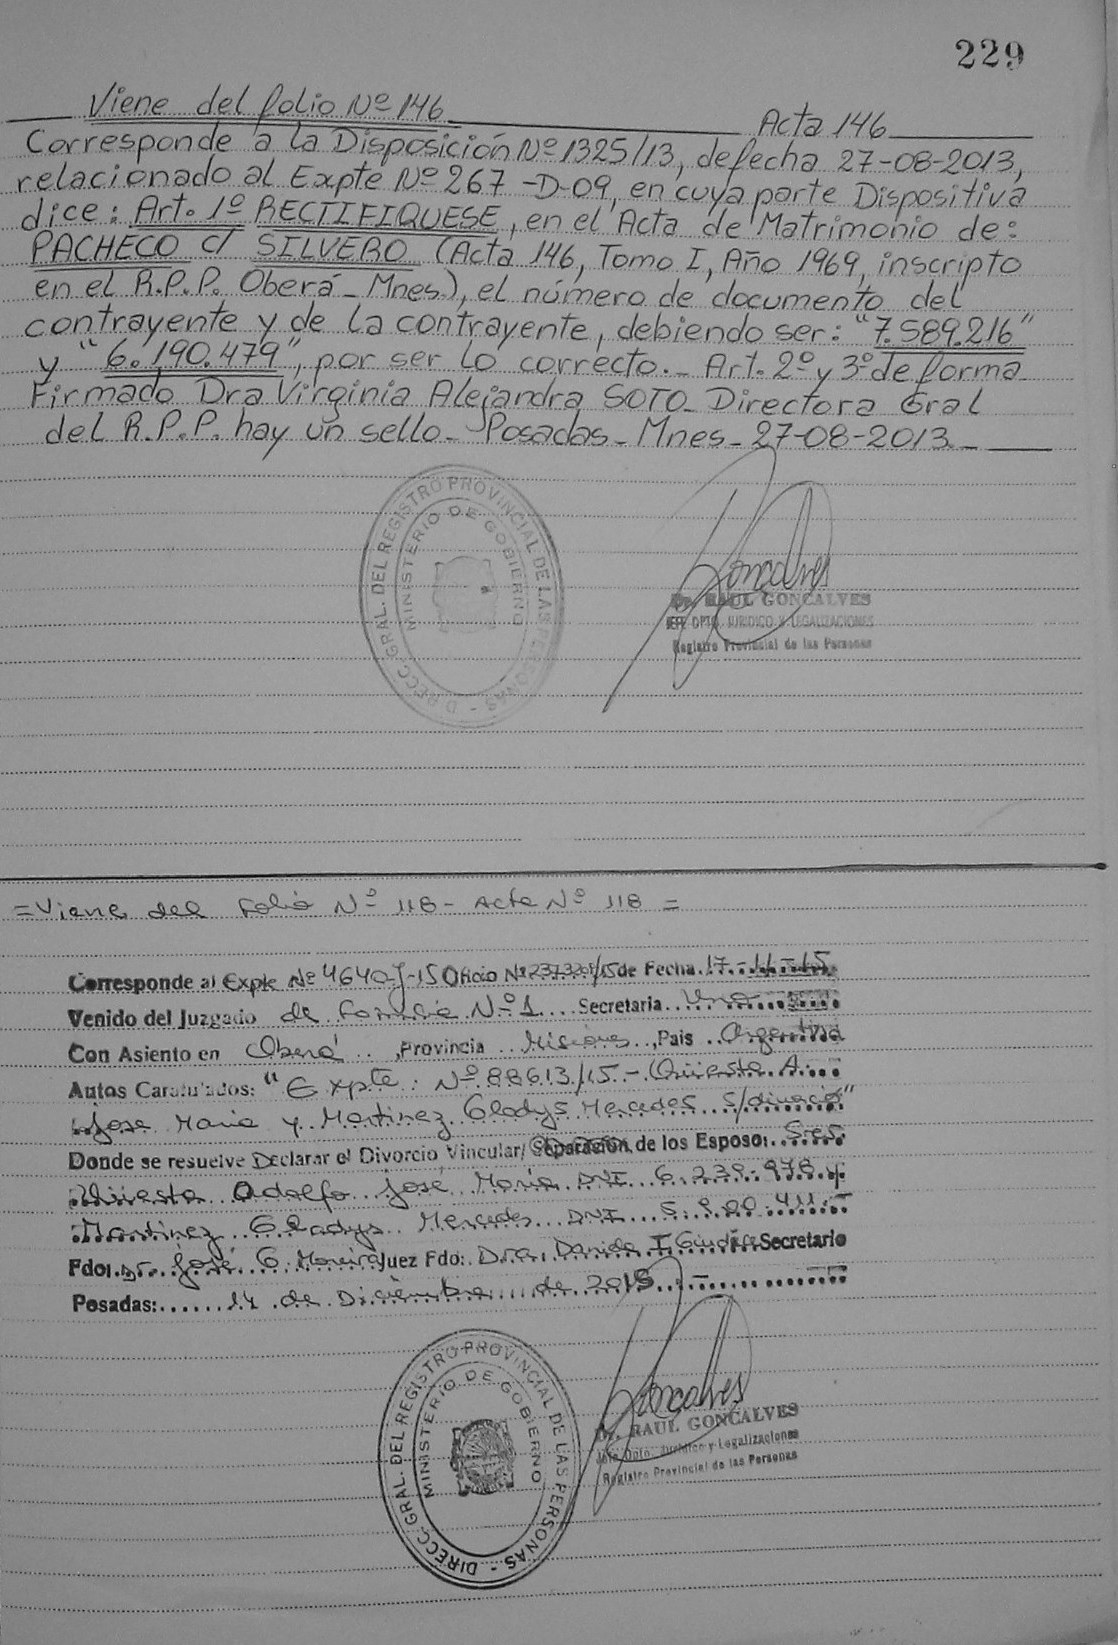 229
Viene del folio Nº 146 Acta 146
Corresponde a la Disposición Nº 1325/13, de fecha 27-08-2013,
relacionado al Expte Nº 267-D-09, en cuya parte Dispositiva
dice: Art. 1º RECTIFIQUESE, en el Acta de Matrimonio de:
PACHECO c/ SILVERO (Acta 146, Tomo I, Año 1969, inscripto
en el R.P.P. Oberá - Mnes.), el número de documento del
contrayente y de la contrayente, debiendo ser: "7.589.216"
y "6.190.479", por ser lo correcto.- Art. 2º y 3º de forma
Firmado Dra Virginia Alejandra SOTO- Directora Gral
del R.P.P. hay un sello- Posadas- Mnes- 27-08-2013.-
DIRECC. GRAL. DEL REGISTRO PROVINCIAL DE LAS PERSONAS -
MINISTERIO DE GOBIERNO
Goncalves
Dr. RAUL GONCALVES
JEFE DPTO. JURIDICO Y LEGALIZACIONES
Registro Provincial de las Personas
=Viene del Folio Nº 118- Acta Nº 118 =
Corresponde al Expte Nº 4640-J-15 Oficio Nº /15 de Fecha 17-11-15
Venido del Juzgado de Familia Nº 1 Secretaria Uno
Con Asiento en Oberá, Provincia Misiones, Pais Argentina
Autos Caratulados: "Expte: Nº 88613/15.- A.
Jose Maria y Martinez Gladys Mercedes s/divorcio"
Donde se resuelve Declarar el Divorcio Vincular/Separación de los Esposos Sres
Adolfo José María DNI 6.239.978 y
Martinez Gladys Mercedes DNI 5.
Fdo: Dr. José G. Moreira Juez Fdo: Dra. I Secretario
Posadas: 14 de Diciembre de 2015.-
DIRECC. GRAL. DEL REGISTRO PROVINCIAL DE LAS PERSONAS -
MINISTERIO DE GOBIERNO
Goncalves
Dr. RAUL GONCALVES
Jefe Dpto. Juridico y Legalizaciones
Registro Provincial de las Personas